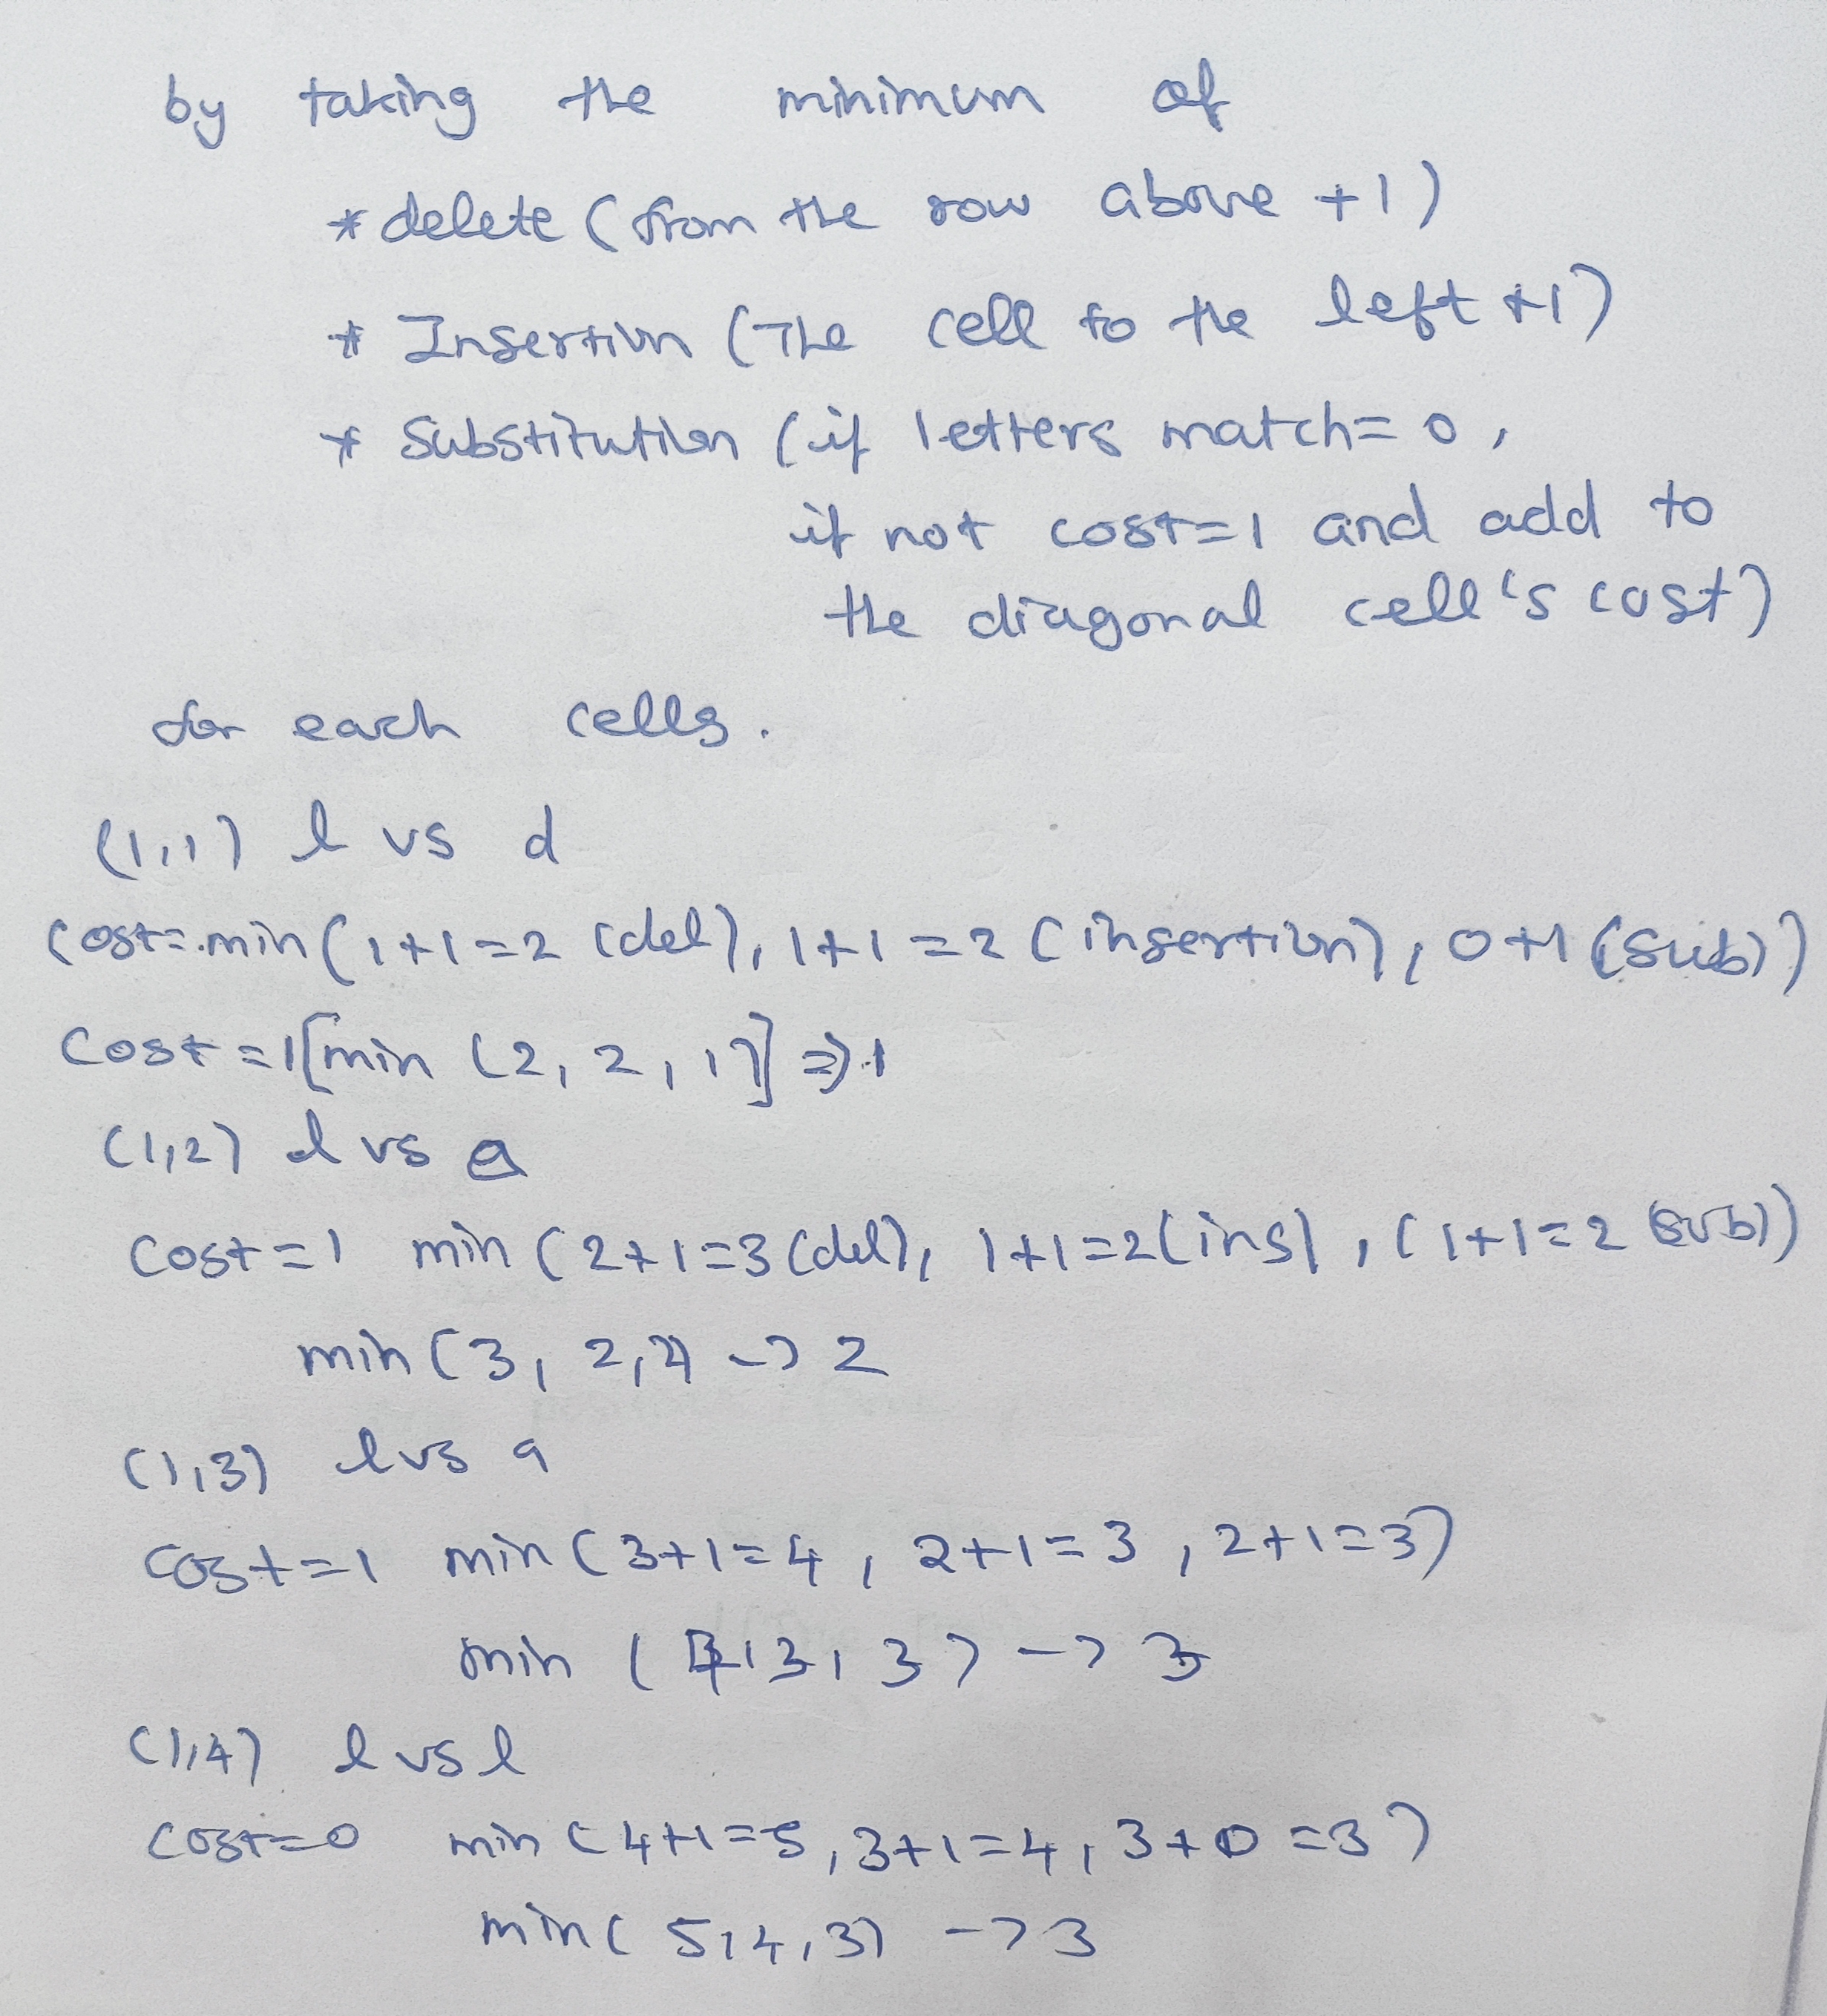 by taking the minimum of
* delete (from the row above +1)
* Insertion (The cell to the left +1)
* Substitution (if letters match = 0,
if not cost=1 and add to
the diagonal cell's cost)
for each cells.
(1,1) l vs d
cost = min(1+1=2 (del), 1+1=2 (insertion), 0+1 (sub))
Cost = 1[min (2, 2, 1)] => 1
(1,2) l vs e
Cost=1 min (2+1=3(del), 1+1=2(ins), (1+1=2 (sub))
min(3, 2, 2) -> 2
(1,3) l vs a
Cost=1 min (3+1=4, 2+1=3, 2+1=3)
min (4,3,3) -> 3
(1,4) l vs l
Cost=0 min (4+1=5, 3+1=4, 3+0=3)
min( 5,4,3) -> 3